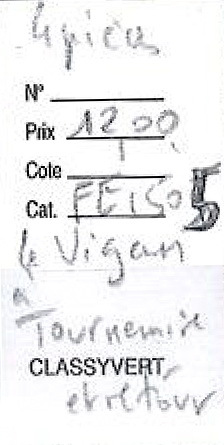 4 pièces
N°
Prix 1200
Cote
Cat. FE 150 5
Le Vigan
a
Tournemire
CLASSYVERT
et retour